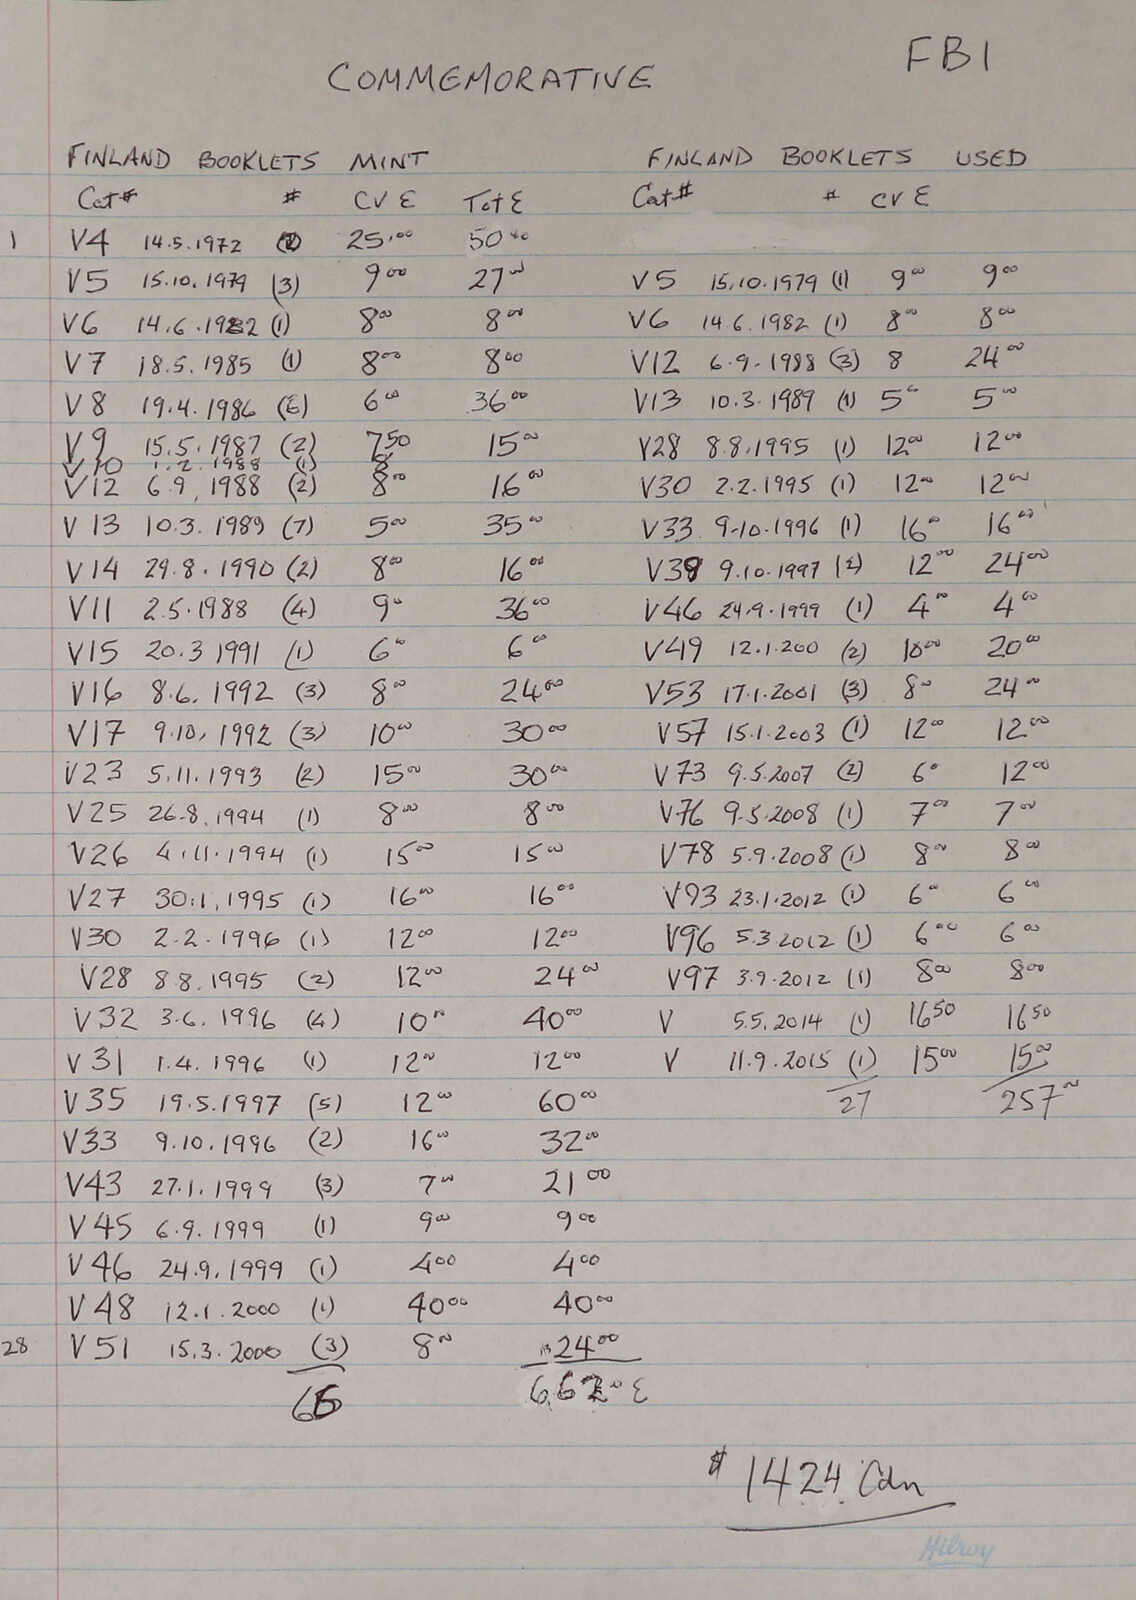 FB1
COMMEMORATIVE
FINLAND BOOKLETS MINT
Cat# # CV € Tot €
1 V4 14.5.1972 (2) 25.00 50.00
V5 15.10.1979 (3) 9 00 27 00
V6 14.6.1982 (1) 8 00 8 00
V7 18.5.1985 (1) 8 00 8 00
V8 19.4.1986 (6) 6 00 36 00
V9 15.5.1987 (2) 7 50 15 00
V10 1.2.1988 (1) 8
V12 6.9.1988 (2) 8 00 16 00
V13 10.3.1989 (7) 5 00 35 00
V14 29.8.1990 (2) 8 00 16 00
V11 2.5.1988 (4) 9 0 36 00
V15 20.3 1991 (1) 6 00 6 00
V16 8.6.1992 (3) 8 00 24 00
V17 9.10.1992 (3) 10 00 30 00
V23 5.11.1993 (2) 15 00 30 00
V25 26.8.1994 (1) 8 00 8 00
V26 4.11.1994 (1) 15 00 15 00
V27 30.1.1995 (1) 16 00 16 00
V30 2.2.1996 (1) 12 00 12 00
V28 8.8.1995 (2) 12 00 24 00
V32 3.6.1996 (4) 10 00 40 00
V31 1.4.1996 (1) 12 00 12 00
V35 19.5.1997 (5) 12 00 60 00
V33 9.10.1996 (2) 16 00 32 00
V43 27.1.1999 (3) 7 00 21 00
V45 6.9.1999 (1) 9 00 9 00
V46 24.9.1999 (1) 4 00 4 00
V48 12.1.2000 (1) 40 00 40 00
28 V51 15.3.2000 (3) 8 00 24 00
66 €
FINLAND BOOKLETS USED
Cat# # CV €
V5 15.10.1979 (1) 9 00 9 00
V6 14.6.1982 (1) 8 00 8 00
V12 6.9.1988 (3) 8 24 00
V13 10.3.1989 (1) 5 00 5 00
V28 8.8.1995 (1) 12 00 12 00
V30 2.2.1995 (1) 12 00 12 00
V33 9-10.1996 (1) 16 0 16 00
V39 9.10.1997 (2) 12 00 24 00
V46 24.9.1999 (1) 4 00 4 00
V49 12.1.200 (2) 10 00 20 00
V53 17.1.2001 (3) 8 00 24 00
V57 15.1.2003 (1) 12 00 12 00
V73 9.5.2007 (2) 6 0 12 00
V76 9.5.2008 (1) 7 00 7 00
V78 5.9.2008 (1) 8 00 8 00
V93 23.1.2012 (1) 6 0 6 00
V96 5.3 2012 (1) 6 00 6 00
V97 3.9.2012 (1) 8 00 8 00
V 5.5.2014 (1) 16 50 16 50
V 11.9.2015 (1) 15 00 15 00
27 257 00
$1424 Cdn
Hilroy